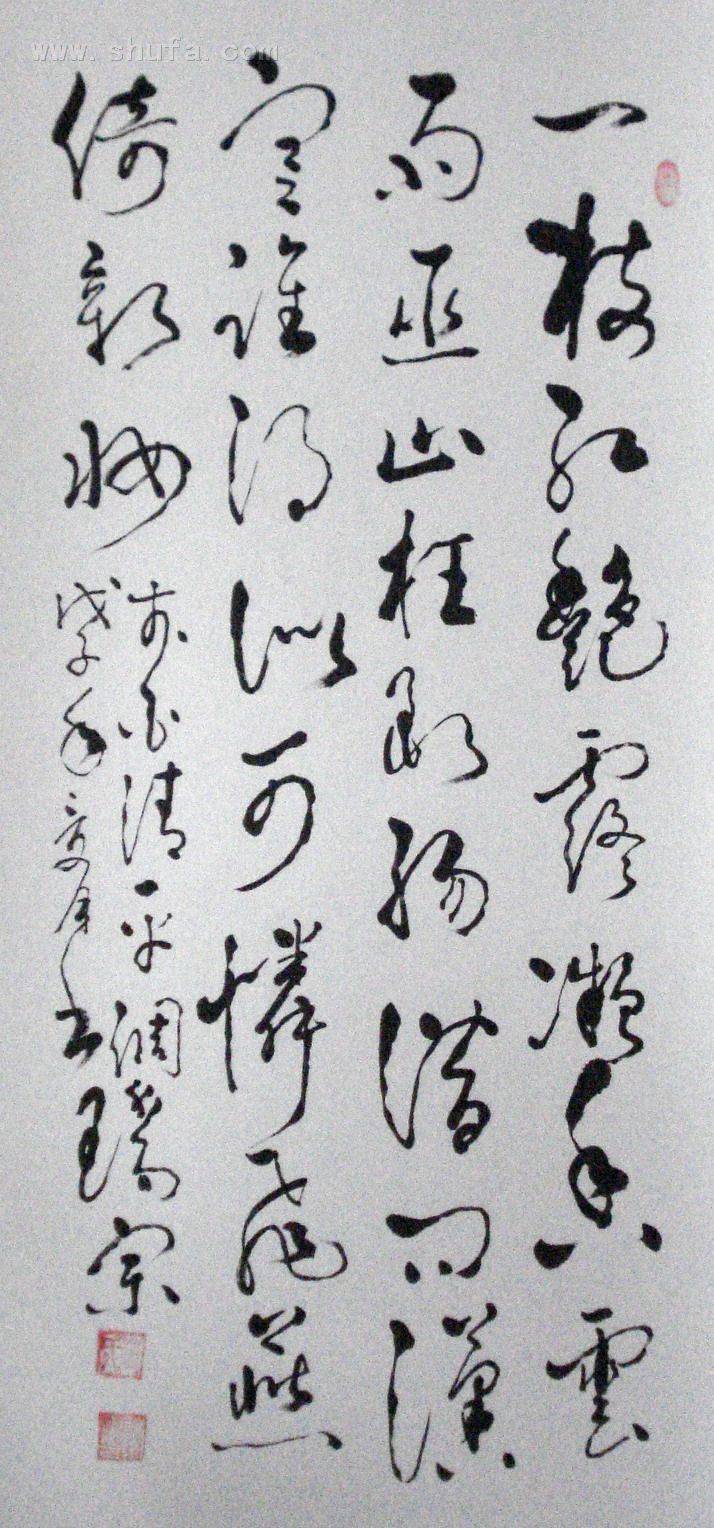 一枝红艳露凝香云
雨巫山枉断肠借问汉
宫谁得似可怜飞燕
倚新妆
李白清平调
戊子年夏月书瑞宗
www.shufa.com